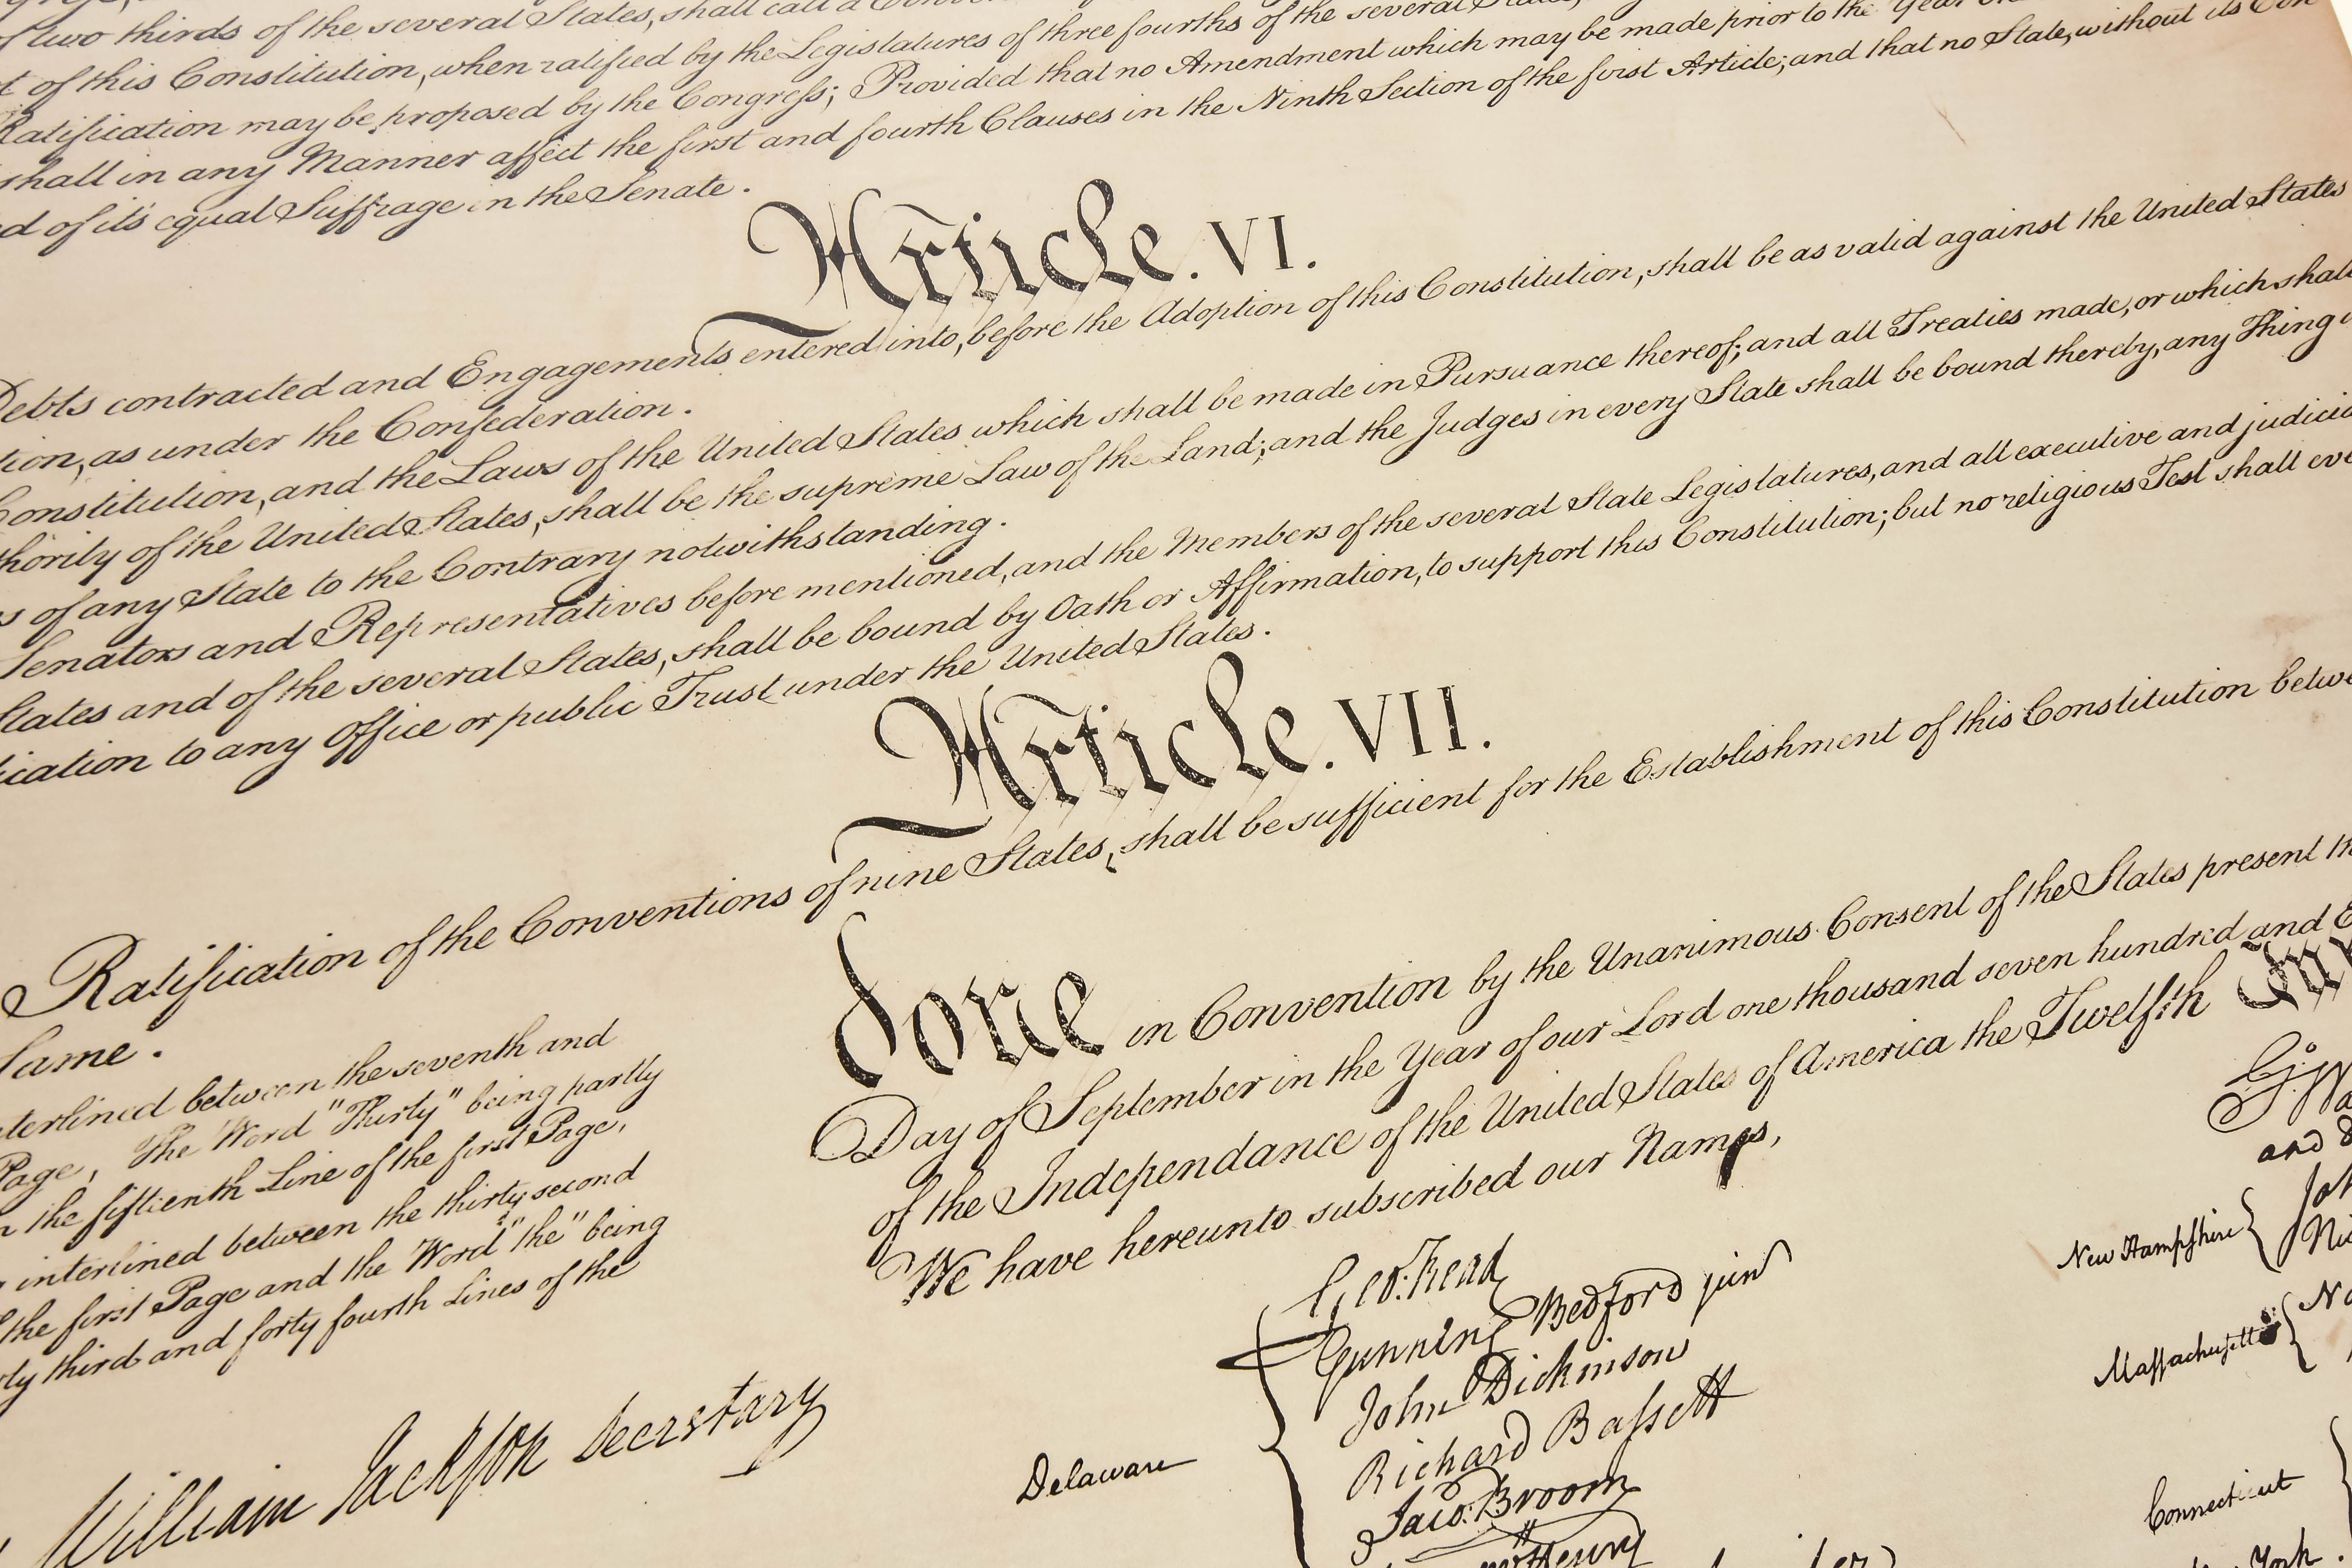 of two thirds of the several States, shall call a
of this Constitution, when ratified by the Legislatures of three fourths of the several States,
Ratification may be proposed by the Congress; Provided that no Amendment which may be made prior to the Year
shall in any Manner affect the first and fourth Clauses in the Ninth Section of the first Article; and that no State, without its Con
d of its equal Suffrage in the Senate.
Article. VI.
Debts contracted and Engagements entered into, before the Adoption of this Constitution, shall be as valid against the United States
tion, as under the Confederation.
Constitution, and the Laws of the United States which shall be made in Pursuance thereof; and all Treaties made, or which shall
thority of the United States, shall be the supreme Law of the Land; and the Judges in every State shall be bound thereby, any Thing
s of any State to the Contrary notwithstanding.
Senators and Representatives before mentioned, and the Members of the several State Legislatures, and all executive and judicia
States and of the several States, shall be bound by Oath or Affirmation, to support this Constitution; but no religious Test shall eve
ication to any Office or public Trust under the United States.
Article. VII.
Ratification of the Conventions of nine States, shall be sufficient for the Establishment of this Constitution betwe
Same.
nterlined between the seventh and
Page, The Word "Thirty" being partly
n the fifteenth Line of the first Page,
interlined between the thirty second
the first Page and the Word "the" being
ty third and forty fourth Lines of the
William Jackson Secretary
done in Convention by the Unanimous Consent of the States present th
Day of September in the Year of our Lord one thousand seven hundred and E
of the Independance of the United States of America the Twelfth
We have hereunto subscribed our Names,
Delaware
Geo: Read
Gunning Bedford jun
John Dickinson
Richard Bassett
Jaco: Broom
and
New Hampshire
Massachusetts
Connecticut
York